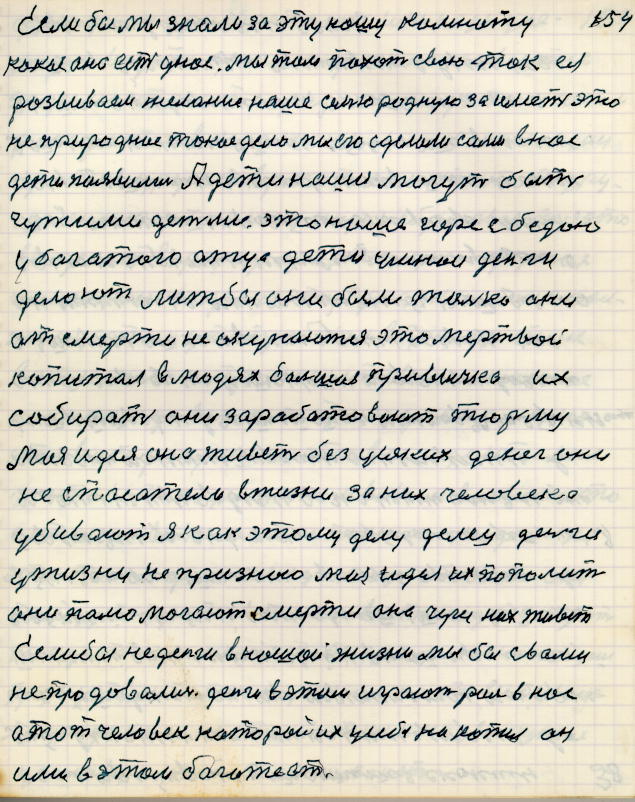 Если бы мы знали за эту нашу комнату 154
какая она есть у нас. мы там похоть свою так
розвиваем желание наше семю родную заиметь это
не природное такое дело мы его сделали сами в нас
дети появились А дети наши могут быть
чужими детьми. это наше горе с бедою
у багатого отца дети умнои денги
делоют лиж бы они были только они
от смерти не окупаются это мертвой
копитал в людях большая привычка их
собирать они зарабатовают тюрму
моя идея она живет без усяких денег они
не спасатель в жизни за них человека
убивают я как этому делу делец денги
у жизни не признаю моя идея их попалит
они памогают смерти она через них живет
Если бы не денги в нашой жизни мы бы с вами
не продовались. денги в этом играют рол в нас
а тот человек каторой их у себя накопил он
или в этом багатеет.